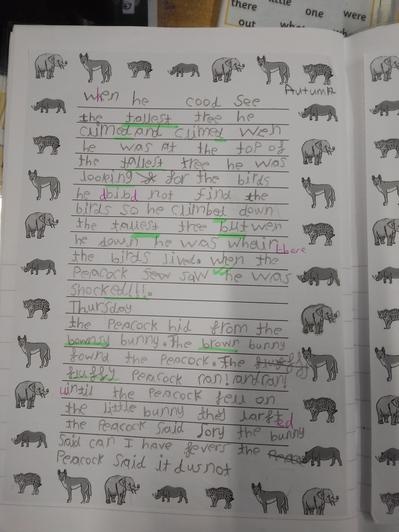 there little one were
out
Autumn
when he cood see
the tallest tree he
climed and climed wen
he was at the top of
the tallest tree he was
looking for the birds
he did not find the
birds so he climbed down
the tallest tree but wen
he down he was whair there
the birds lived. when the
Peacock saw he was
shocked!!!.
Thursday
the Peacock hid from the
bouncy bunny. The brown bunny
found the Peacock. The
fluffy Peacock ran! and ran!
until the Peacock fell on
the little bunny they larfted
the Peacock said Jory the bunny
Said can I have fevers the
Peacock Said it dus not